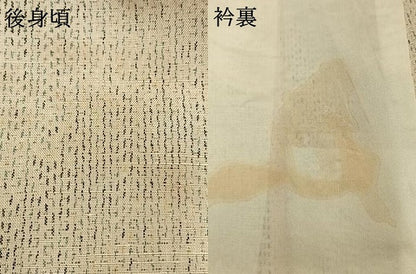 後身頃
衿裏